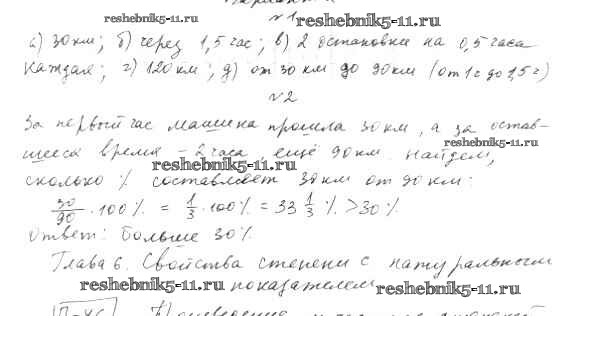 №1 reshebnik5-11.ru
а) 30 км; б) через 1,5 час; в) 2 остановки на 0,5 часа
каждая; г) 120 км; д) от 30 км до 90 км (от 1 ч до 1,5 ч)
№2
За первый час машина прошла 30 км, а за остав-
reshebnik5-11.ru
шееся время – 2 часа ещё 90 км. Найдем,
reshebnik5-11.ru
сколько % составляет 30 км от 90 км:
30/90 · 100% = 1/3 · 100% = 33 1/3 % > 30%
Ответ: больше 30%
Глава 6. Свойства степени с натуральным
reshebnik5-11.ru показателем reshebnik5-11.ru